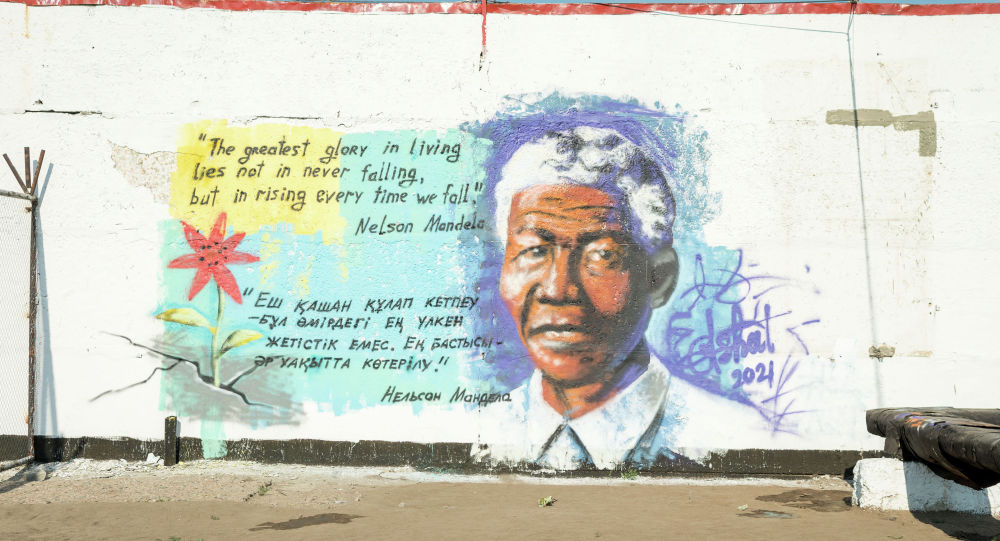 "The greatest glory in living
lies not in never falling,
but in rising every time we fall."
Nelson Mandela
"Еш қашан құлап кетпеу
-бұл өмірдегі ең үлкен
жетістік емес. Ең бастысы-
әр уақытта көтерілу."
Нельсон Мандела
2021